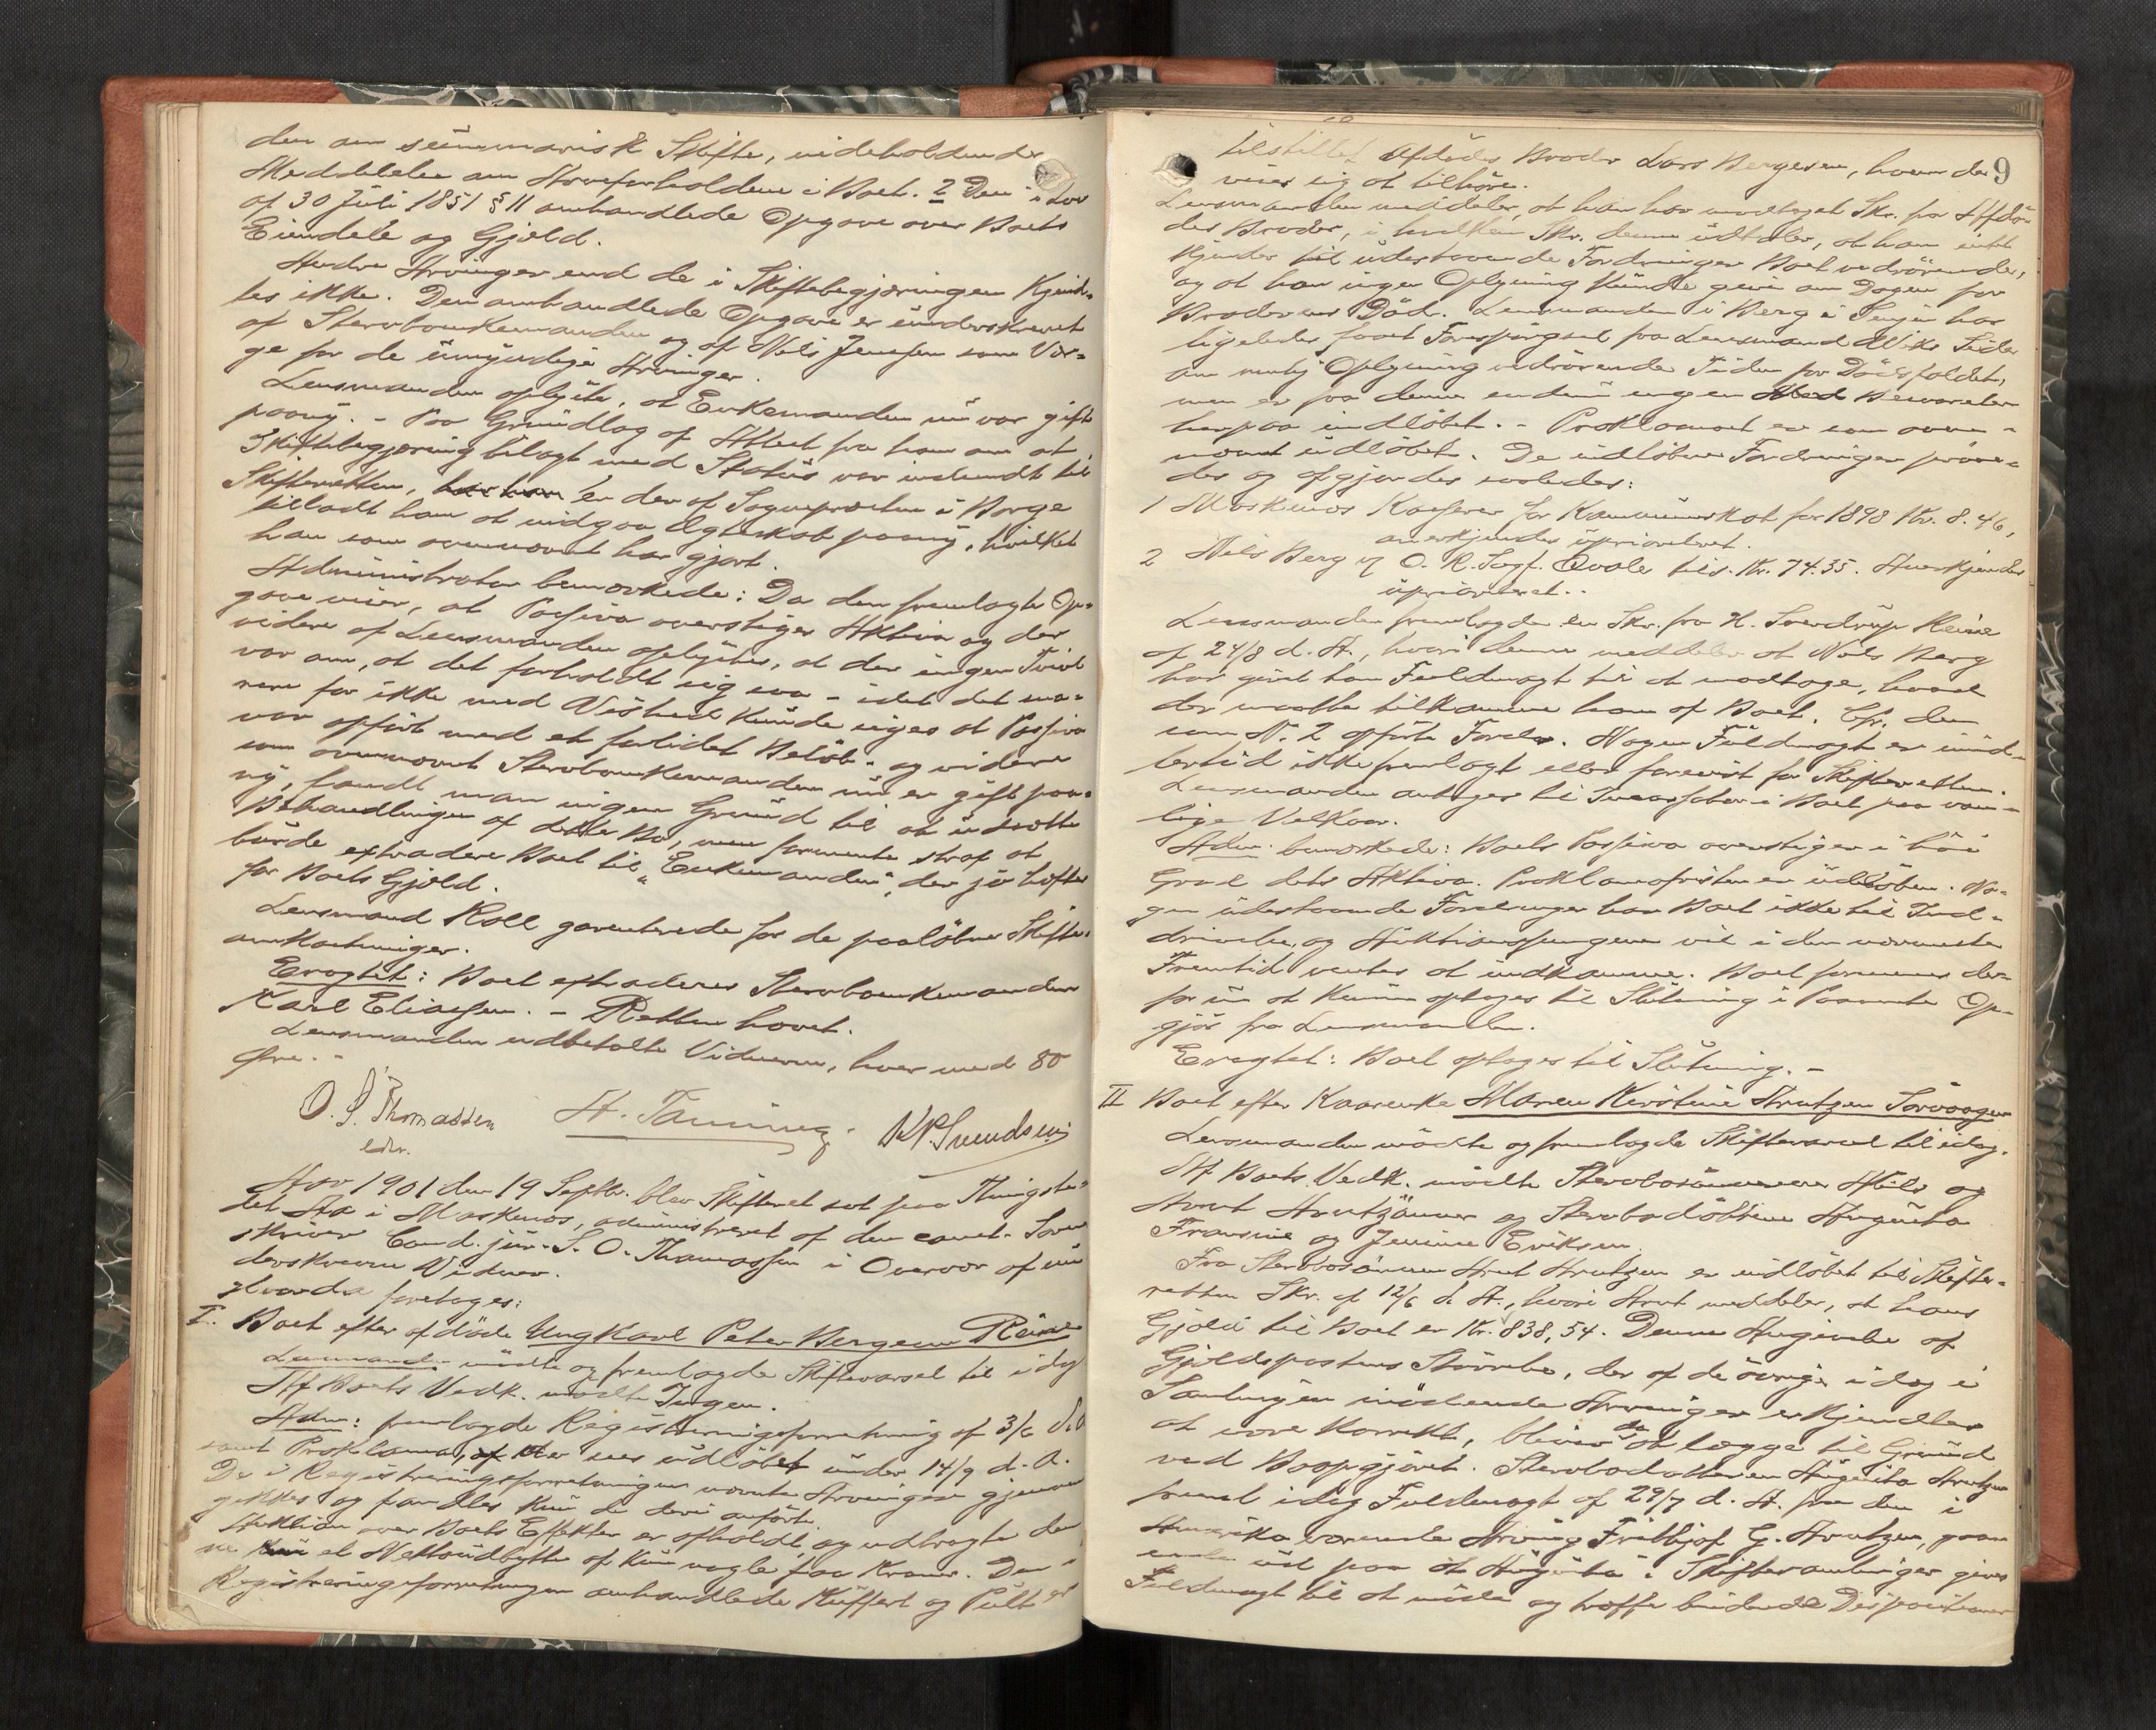 den om summarisk Skifte, indeholdende
Meddelelse om Arveforholdene i Boet. 2 Den i Lov
af 30 Juli 1851 § 11 omhandlede Opgave over Boets
Eiendele og Gjæld.
Andre Arvinger end de i Skiftebegjæringen Kjend-
tes ikke. Den omhandlede Opgave er underskrevet
af Stervboenkemanden og af Nils Jenssen som Vær-
ge for de umyndige Arvinger.
Lensmanden oplyste, at Enkemanden nu var gift
paany. - Paa Grundlag af Attest fra ham om at
Skiftebegjæring bilagt med Status var indsendt til
Skifteretten, er der af Sognepresten i Borge
tilladt ham at indgaa Ægteskab paany, hvilket
han som ovennævnt har gjort.
Administrator bemærkede: Da den fremlagte Op-
gave viser, at Passiva overstiger Aktiva og der
videre af Lensmanden oplystes, at der ingen Tvivl
var om, at det forholdt sig saa - idet det sna-
rere for ikke med Vished kunde siges at Passiva
var opført med et forlidet Beløb - og videre
som ovennævnt Stervboenkemanden nu er gift paa-
ny, fandt man ingen Grund til at udsætte
Behandlingen af dette Bo, men formente strax at
burde extradere Boet til "Enkemanden", der jo hæfter
for Boets Gjæld.
Lensmand Koll garenterede for de paaløbne Skifte-
omkostninger.
Eragtet: Boet extraderes Stervboenkemanden
Karl Eliassen. - Retten hævet.
Lensmanden udbetalte Vidnerne, hver med 80
Øre. -
O. S. Thomassen
edv.
A. Tanning.
K P Svendsen
Aar 1901 den 19 Septbr. blev Skifteret sat paa Thingste-
det Aa i Moskenæs, administreret af den const. Soren-
skriver Cand. jur. S. O. Thomassen i Overvær af un-
derskrevne Vidner.
Hvorda foretoges:
I. Boet efter afdøde Ungkarl Peter Bergesen Reine
Lensmanden mødte og fremlagde Skiftevarsel til idag
Af Boets Vedk. mødte Ingen.
Adm: fremlagde Registreringsforretning af 3/6 d. A
samt Proklama, der sees udløbet under 14/9 d. A.
De i Registreringsforretningen nævnte Arvinger gjennem-
gikkes og fandtes kun de deri anførte.
Auktion over Boets Effekter er afholdt og udbragte den-
ne et Nettoudbytte af kun nogle faa Kroner. Den i
Registreringsforretningen omhandlede Kuffert og Pult er
9
tilstillet Afdødes Broder Lars Bergesen, hvem de
viser sig at tilhøre.
Lensmanden meddeler, at han har modtaget Skr. fra Afdø-
des Broder, i hvilken Skr. denne udtaler, at han intet
kjender til udestaaende Fordringer Boet vedrørende,
og at han ingen Oplysning kunde give om Dagen for
Broderens Død. Lensmanden i Berg i Senjen har
ligeledes faaet Forespørgsel fra Lensmand Side
om mulig Oplysning vedrørende Tiden for Dødsfaldet,
men er fra denne endnu ingen Besvarelse
herpaa indløbet. - Proklamaet er som oven-
nævnt udløbet. De indløbne Fordringer prøve-
des og afgjordes saaledes:
1 Moskenæs Kasserer for Kommuneskat for 1898 Kr. 8.46,
anerkjendes uprioriteret.
2 Nils Berg v/ O. R. Sagf. Qvale tils. Kr. 74.35. Anerkjendes
uprioriteret. -
Lensmanden fremlagde en Skr. fra H. Sverdrup Reine
af 24/8 d. A., hvori denne meddeler at Nils Berg
har givet ham Fuldmagt til at modtage, hvad
der maatte tilkomme ham af Boet. Cfr. den
som N. 2 opførte Fordr. Nogen Fuldmagt er imid-
lertid ikke fremlagt eller forevist for Skifteretten.
Lensmanden antages til Incassator i Boet paa van-
lige Vilkaar.
Adm. bemærkede: Boets Passiva overstiger i høi
Grad dets Aktiva. Proklamafristen er udløben. No-
gen udestaaende Fordringer har Boet ikke til Ind-
drivelse, og Auktionspengene vil i den nærmeste
Fremtid ventes at indkomme. Boet formenes der-
for nu at kunne optages til Slutning i Paavente Op-
gjør fra Lensmanden.
Eragtet: Boet optages til Slutning. -
II Boet efter Kaarenke Maren Kirstine Arntzen Sørvaagen
Lensmanden mødte og fremlagde Skiftevarsel til idag.
Af Boets Vedk. mødte Stervbosønnerne Nils og
Arnt Arntzønner og Stervbodøttrene Augusta
Fransine og Jensine Eriksen.
Fra Stervbosønnen Arnt Arntzen er indløbet til Skifte-
retten Skr. af 12/6 d. A., hvori Arnt meddeler, at hans
Gjæld til Boet er Kr. 838,54. Denne Angivelse af
Gjældspostens Størrelse, der af de øvrige idag i
Samlingen mødende Arvinger erkjendtes
at være korrekt, bliver da at lægge til Grund
ved Boopgjøret. Stervbodatteren Augusta Arntzen
freml. idag Fuldmagt af 29/7 d. A. fra den i
Amerika værende Arving Fridtjof G. Arntzen, gaa-
ende ud paa at Augusta i Skiftesamlinger gives
Fuldmagt til at møde og træffe bindende Dispositioner